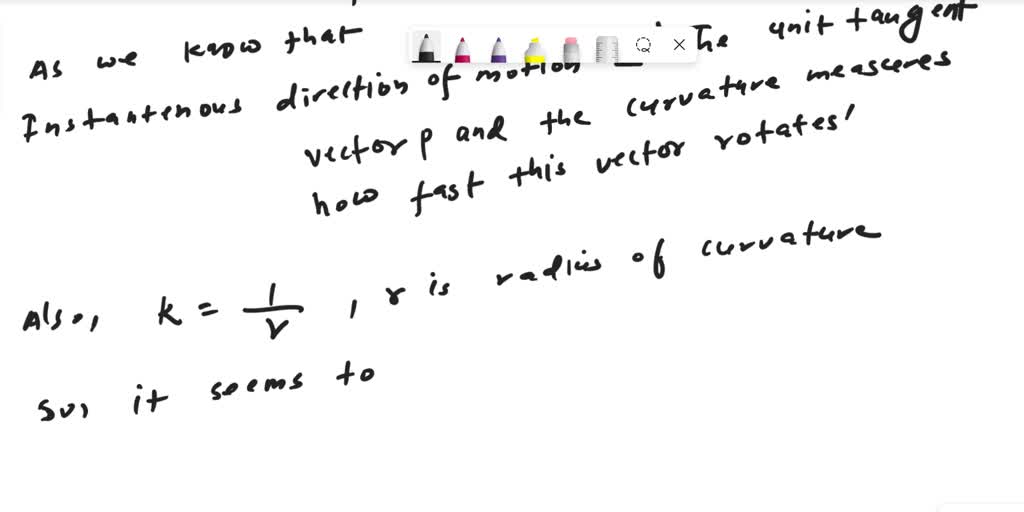 As we know that The unit tangent
Instantenous direction of motion
vector p and the curvature measures
how fast this vector rotates'
Also, k = 1/r , r is radius of curvature
So, it seems to